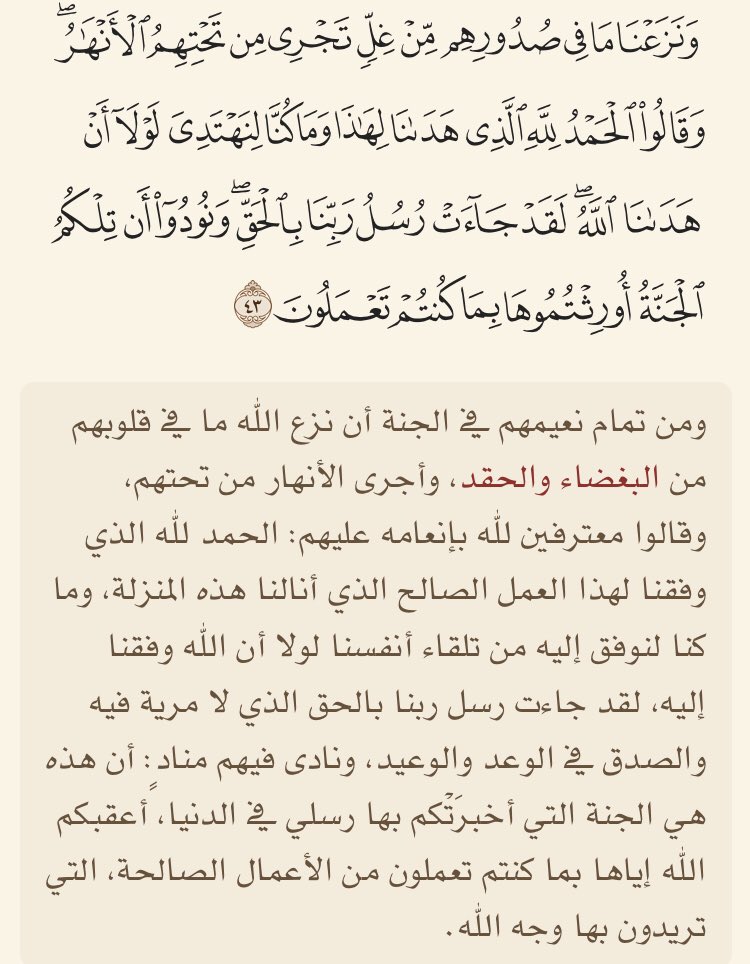 وَنَزَعۡنَا مَا فِي صُدُورِهِم مِّنۡ غِلّٖ تَجۡرِي مِن تَحۡتِهِمُ ٱلۡأَنۡهَٰرُۖ
وَقَالُواْ ٱلۡحَمۡدُ لِلَّهِ ٱلَّذِي هَدَىٰنَا لِهَٰذَا وَمَا كُنَّا لِنَهۡتَدِيَ لَوۡلَآ أَنۡ
هَدَىٰنَا ٱللَّهُۖ لَقَدۡ جَآءَتۡ رُسُلُ رَبِّنَا بِٱلۡحَقِّۖ وَنُودُوٓاْ أَن تِلۡكُمُ
ٱلۡجَنَّةُ أُورِثۡتُمُوهَا بِمَا كُنتُمۡ تَعۡمَلُونَ ٤٣
ومن تمام نعيمهم في الجنة أن نزع الله ما في قلوبهم
من البغضاء والحقد، وأجرى الأنهار من تحتهم،
وقالوا معترفين لله بإنعامه عليهم: الحمد لله الذي
وفقنا لهذا العمل الصالح الذي أنالنا هذه المنزلة، وما
كنا لنوفق إليه من تلقاء أنفسنا لولا أن الله وفقنا
إليه، لقد جاءت رسل ربنا بالحق الذي لا مرية فيه
والصدق في الوعد والوعيد، ونادى فيهم منادٍ: أن هذه
هي الجنة التي أخبرَتْكم بها رسلي في الدنيا، أعقبكم
الله إياها بما كنتم تعملون من الأعمال الصالحة، التي
تريدون بها وجه الله.